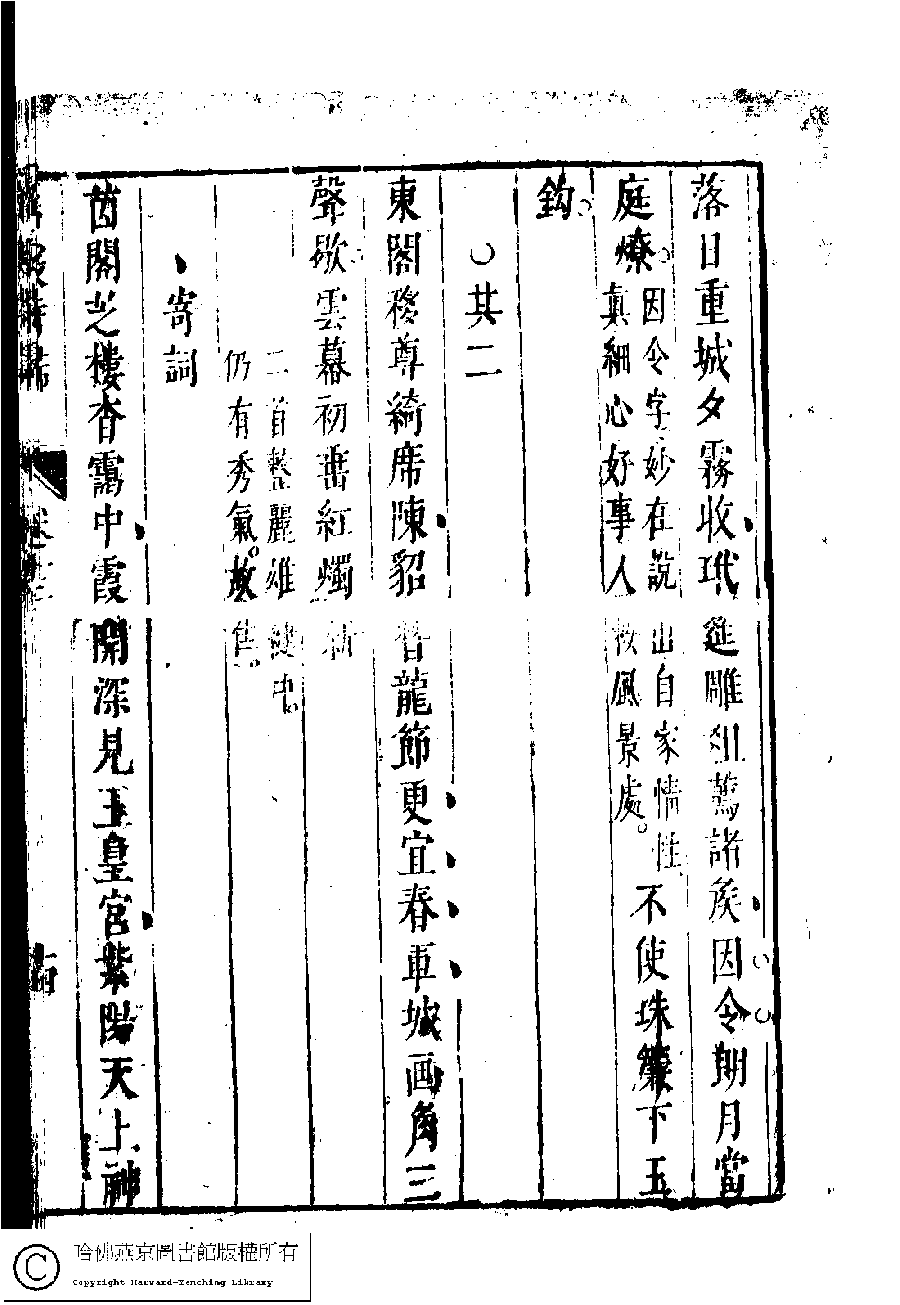 落日重城夕霧收玳筵雕俎薦諸矦因令朗月當
庭燎因令字妙在說出自家情性
真細心好事人被風景處不使珠簾下玉
鈎
其二
東閣移尊綺席陳貂簪龍節更宜春軍城画角三
聲歇雲幕初垂紅燭新
二首整麗雄健中
仍有秀氣故佳
寄詞
茵閣芝樓杳靄中霞開深見玉皇宮紫陽天上神
哈佛燕京圖書館版權所有
Copyright Harvard-Yenching Library